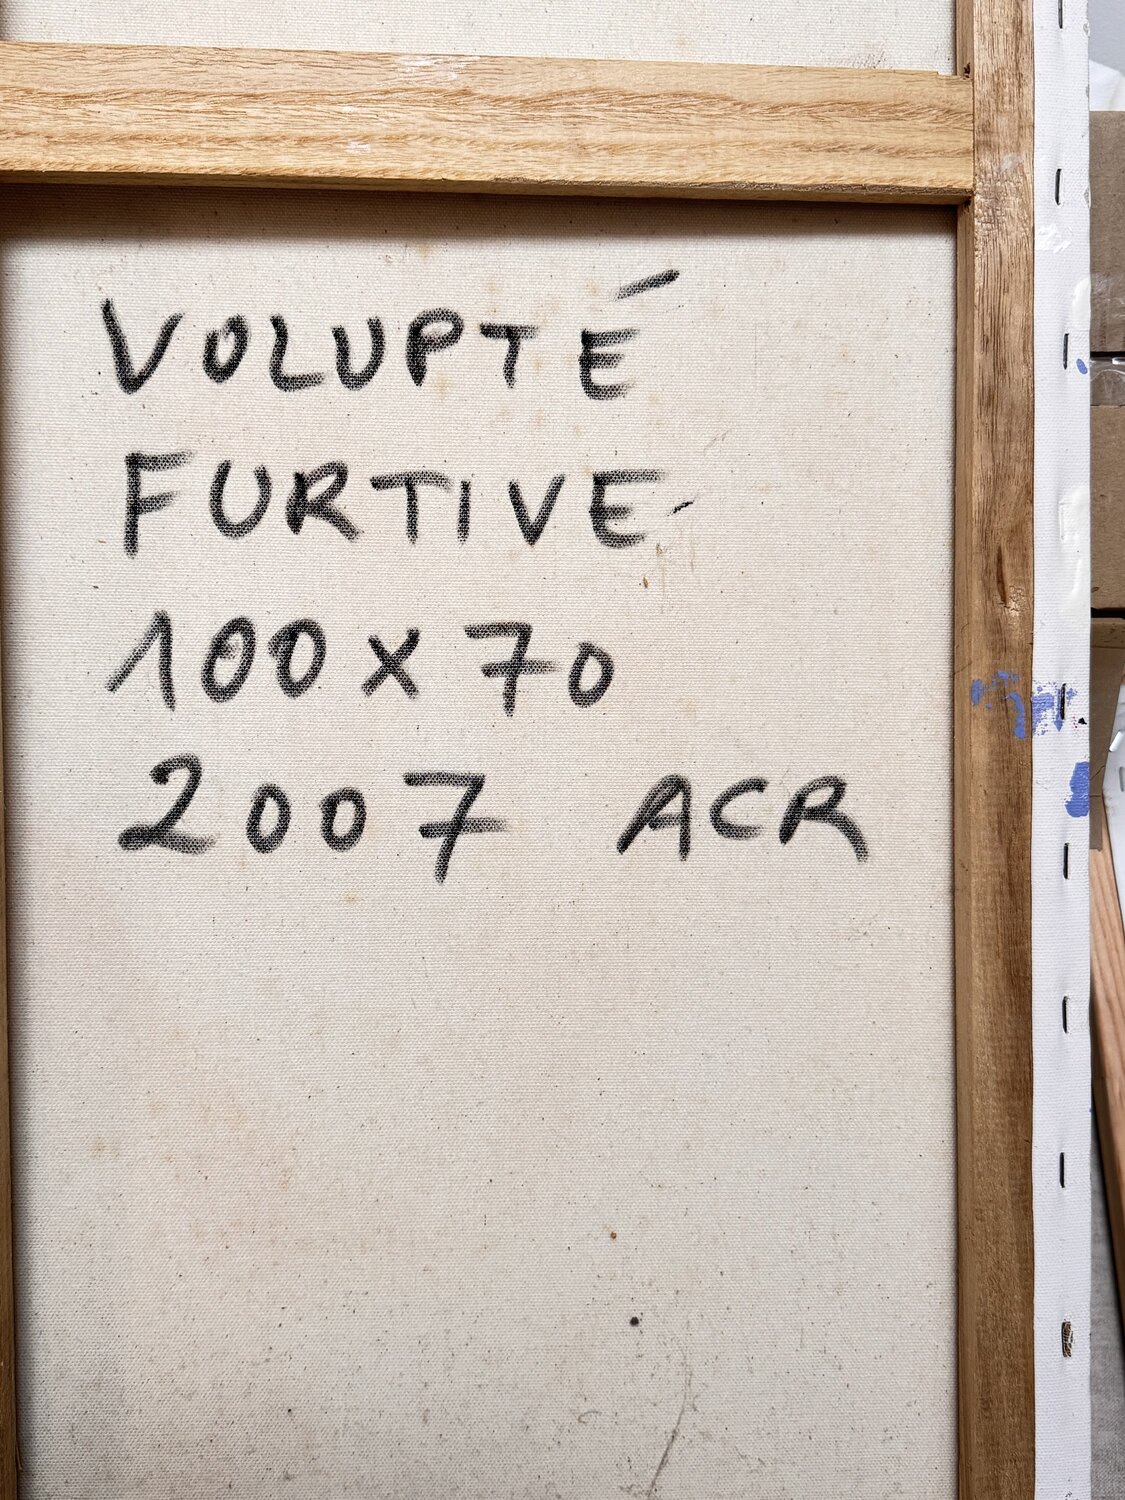 VOLUPTÉ
FURTIVE-
100 x 70
2007 ACR